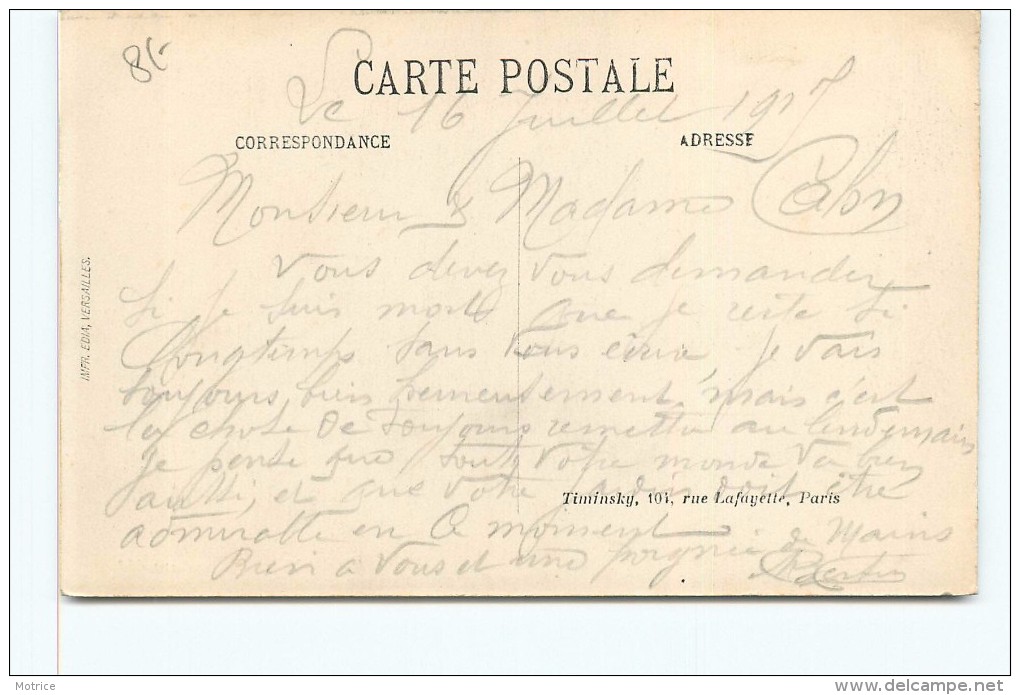 85
CARTE POSTALE
Le 16 Juillet 1917
CORRESPONDANCE
ADRESSE
Monsieur & Madame
Vous devez vous demander
si je suis mort que je reste si
longtemps sans vous écrire je vais
toujours bien heureusement, mais c'est
la chose de toujours remettre au lendemain
Je pense que tout votre monde va bien
aussi, et que votre jardin doit être
Timinsky, 101, rue Lafayette, Paris
admirable en ce moment
Bien a vous et une poignée de Mains
IMPR. EDIA, VERSAILLES.
Motrice
www.delcampe.net